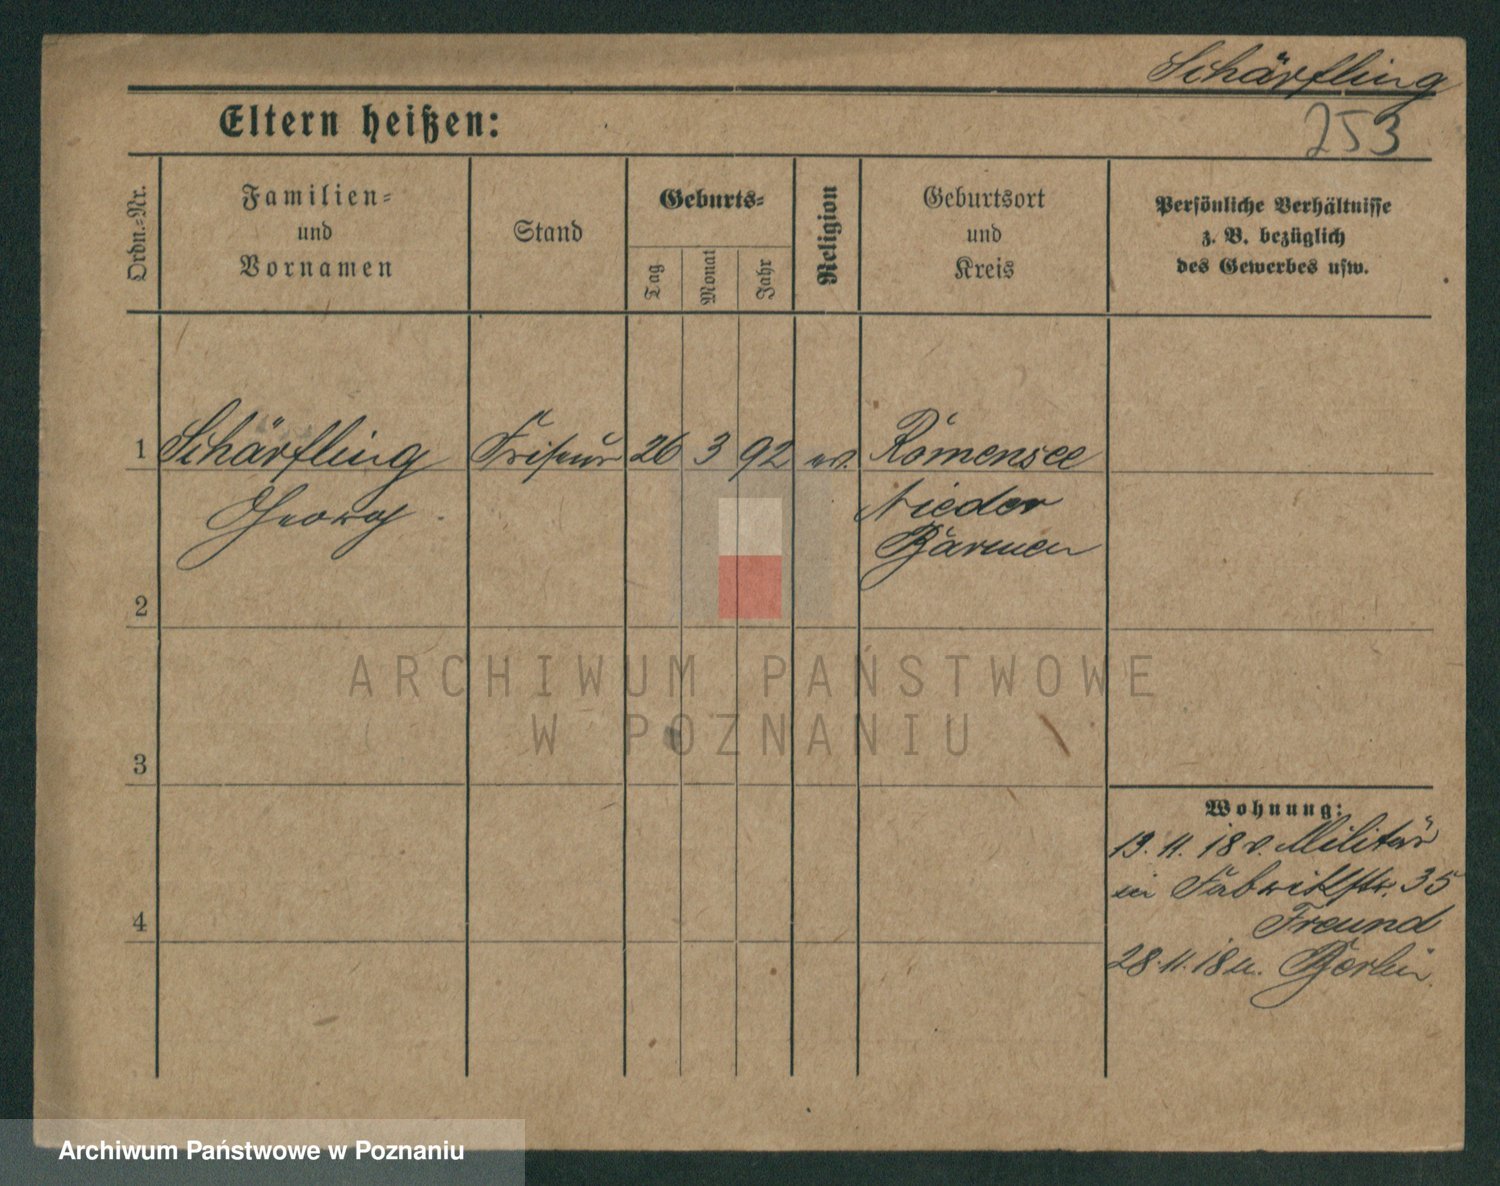 Schärfling
253
Eltern heißen:
Ordn.-Nr.
Familien-
und
Vornamen
Stand
Geburts-
Tag
Monat
Jahr
Religion
Geburtsort
und
Kreis
Persönliche Verhältnisse
z. B. bezüglich
des Gewerbes usw.
1 Schärfling Friseur 26 3 92 ev. Römensee
Georg Nieder
Barmen
2
3
4
Wohnung:
19. 11. 18 v. Militär
in Fabrikstr. 35
Freund
28. 11. 18 n. Berlin
ARCHIWUM PAŃSTWOWE
W POZNANIU
Archiwum Państwowe w Poznaniu